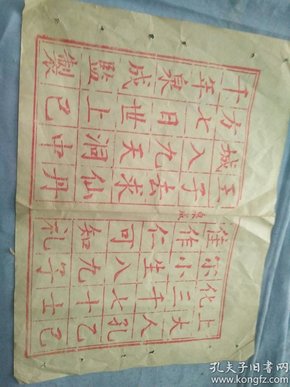 上大人孔乙己
化三千七十士
尔小生八九子
佳作仁可知礼
王子去求仙丹
城入九天洞中
方七日世上己
千年泉成監製
孔夫子旧书网
www.kongfz.com